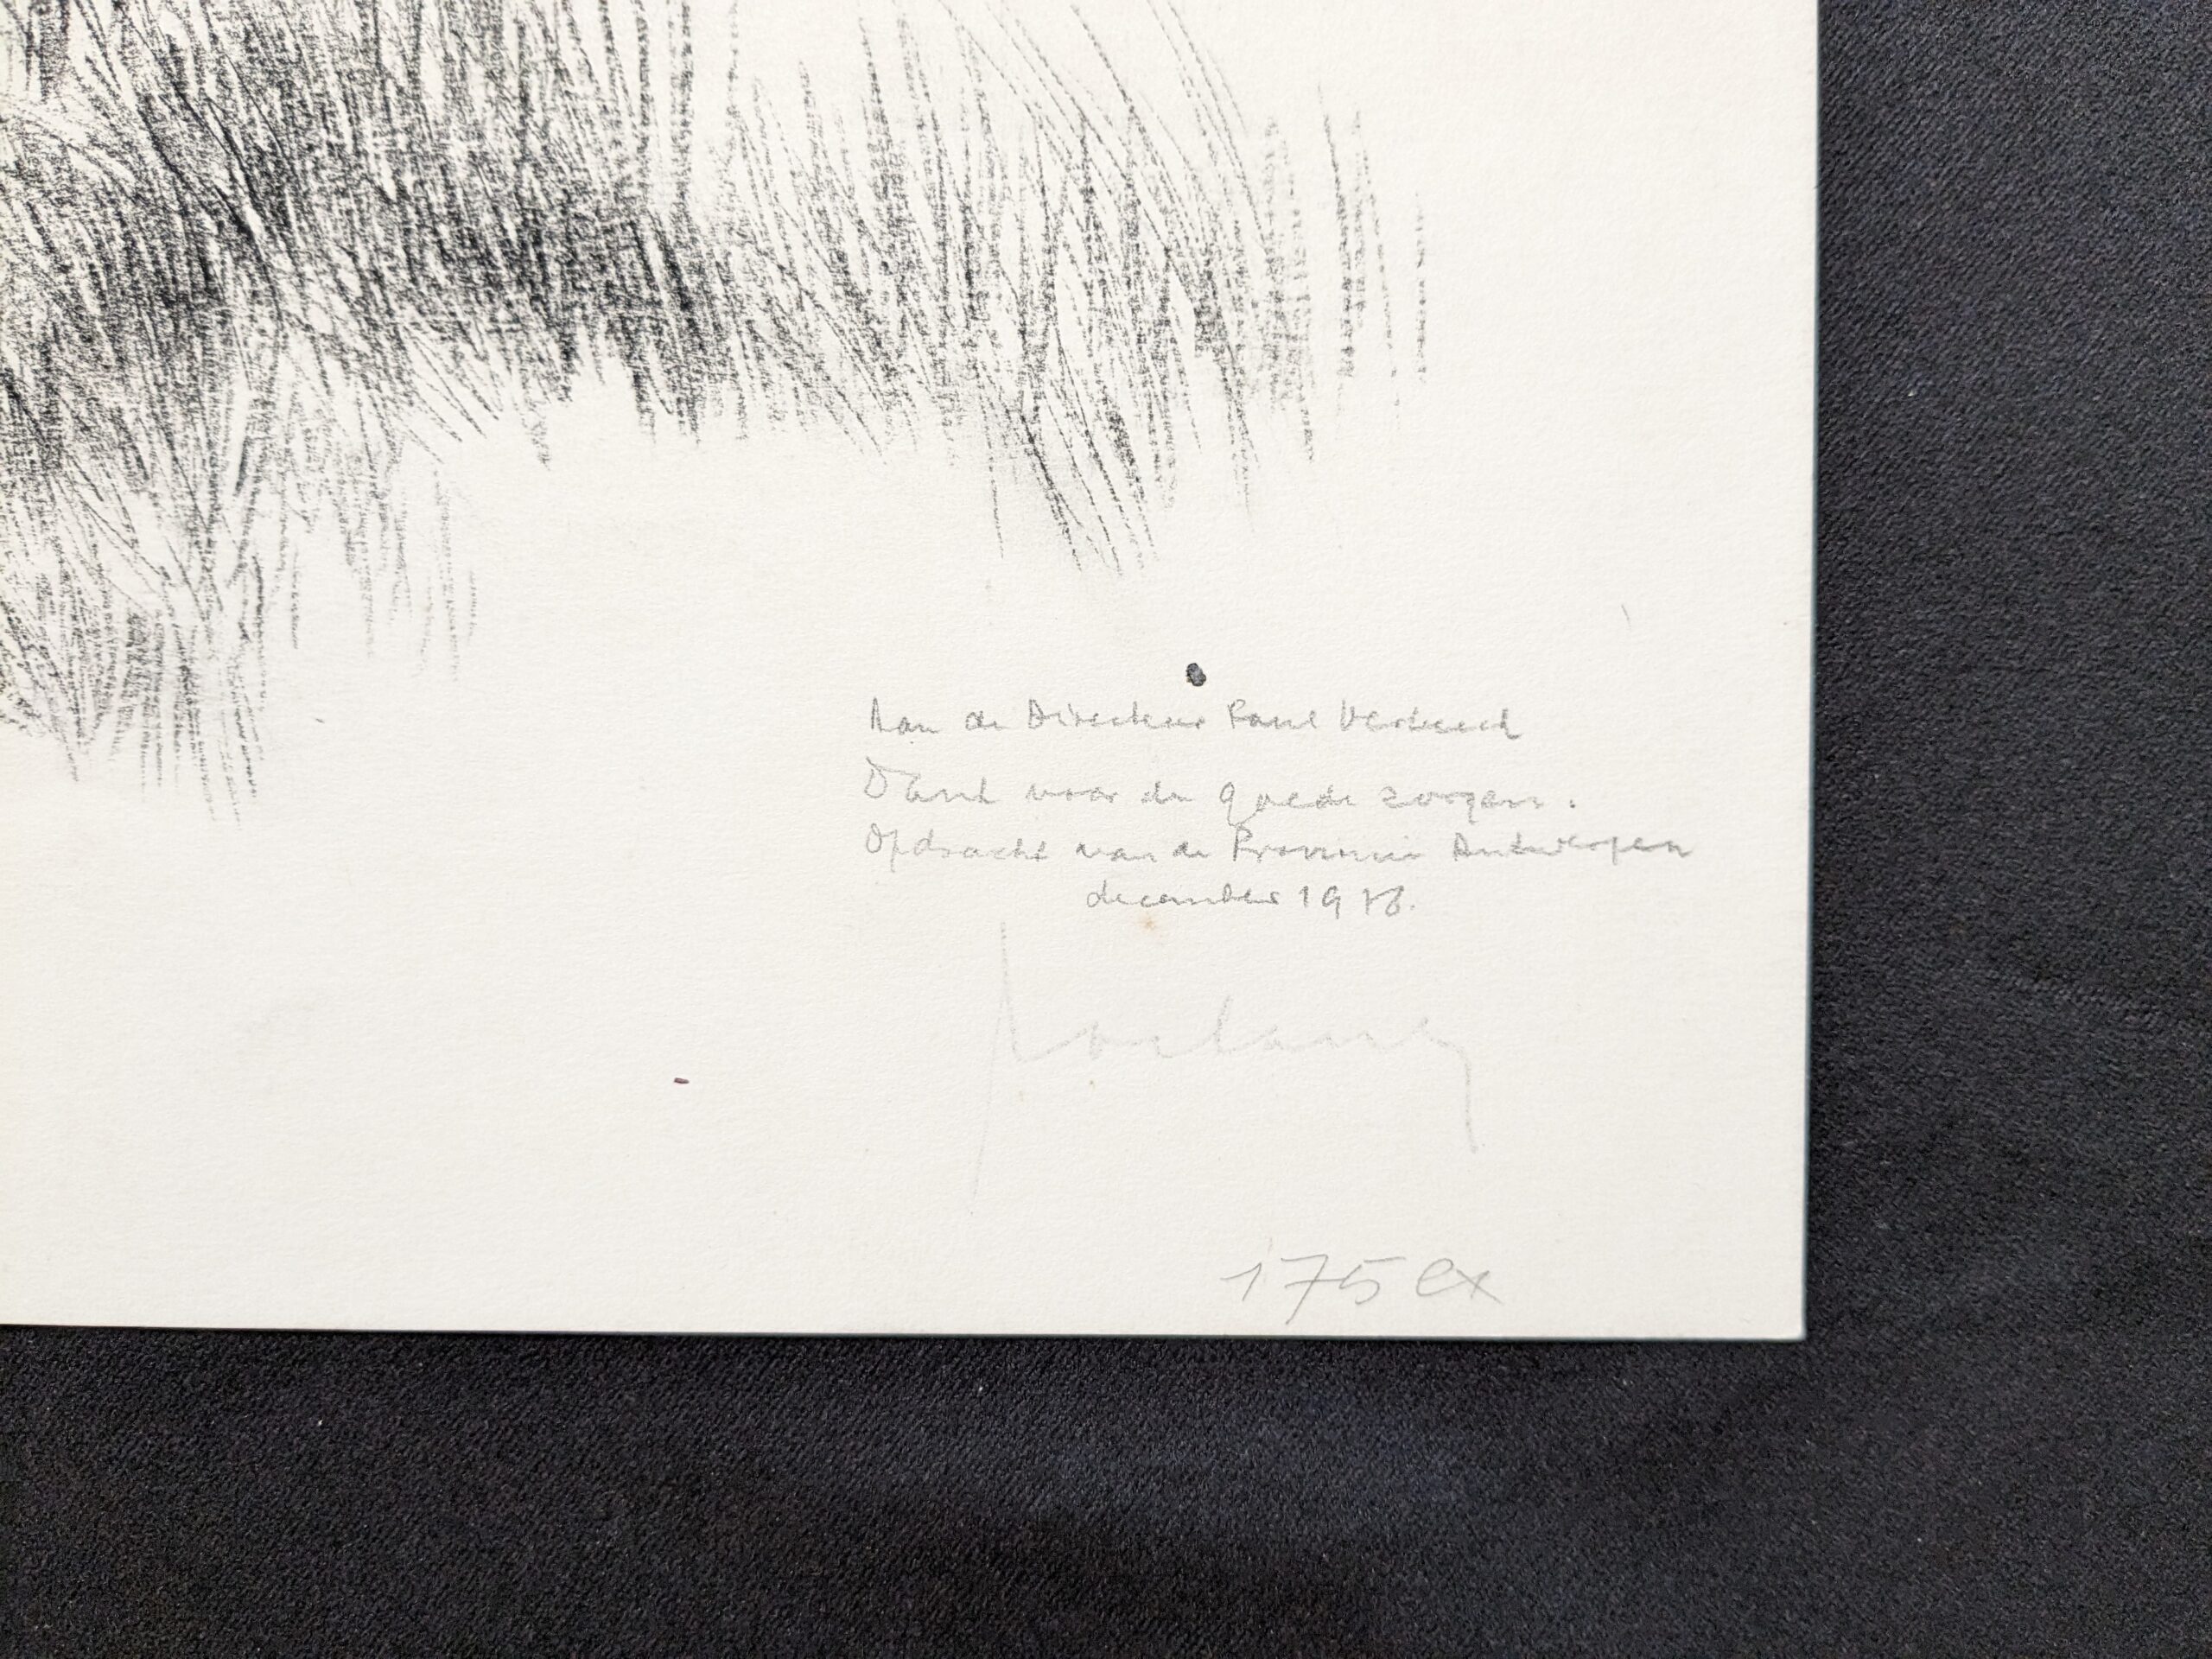 Aan de Directeur Paul Verbeeck
Dank voor de goede zorgen.
Opdracht van de Provincie Antwerpen
december 19
175 ex